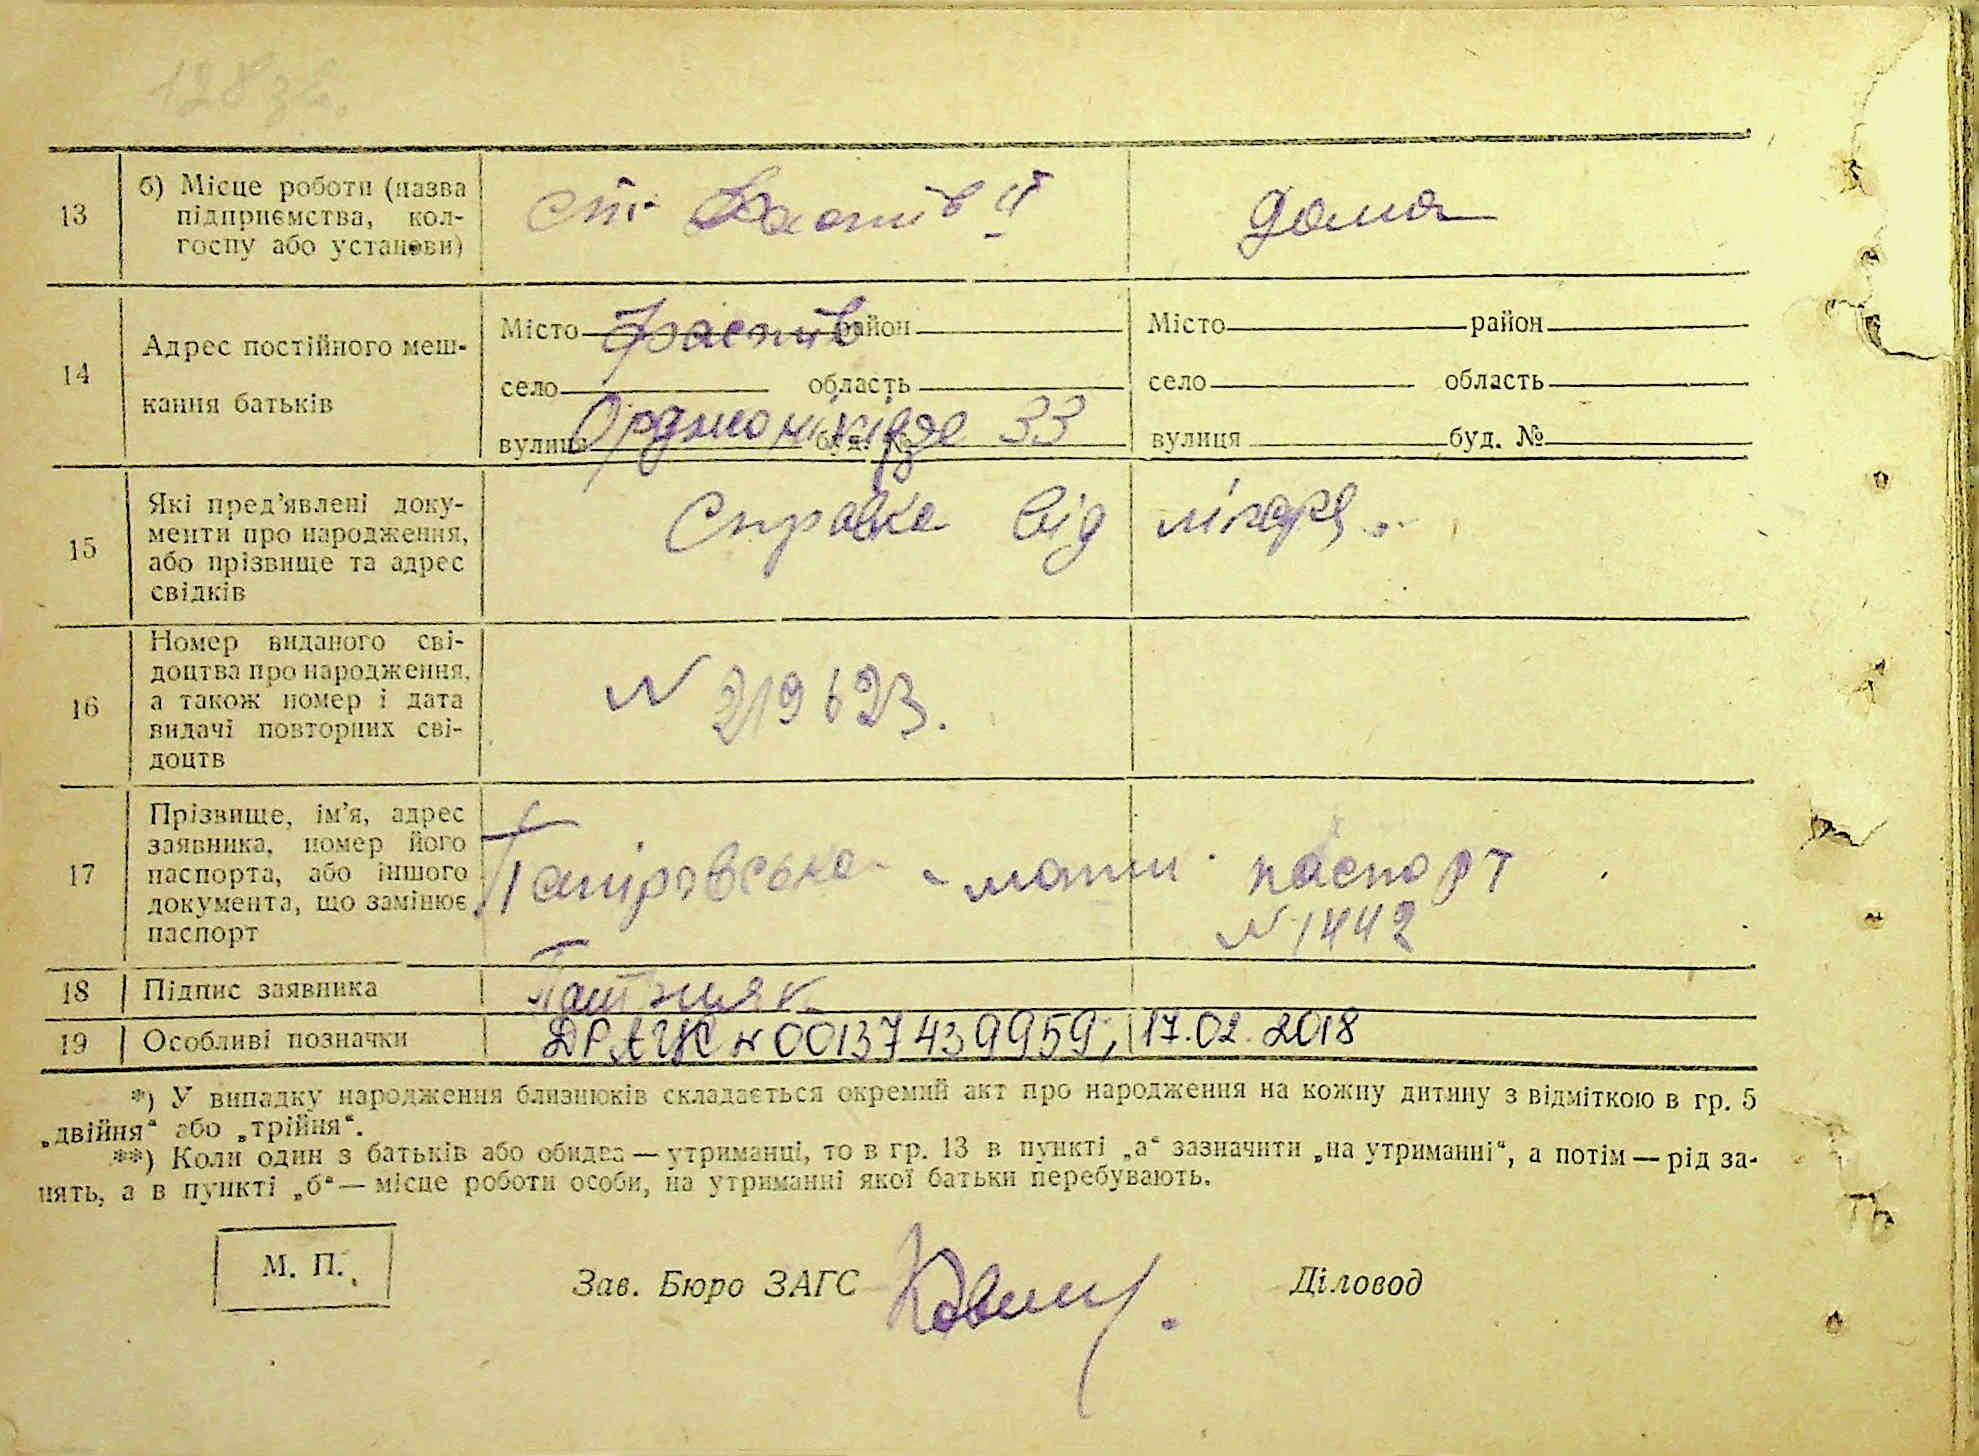 128 зв.
13 б) Місце роботи (назва підприємства, колгоспу або установи) ст. Фастів II дома
14 Адрес постійного мешкання батьків
Місто Фастів район Місто район
село область село область
вулиця Орджонікідзе буд. № 33 вулиця буд. №
15 Які пред’явлені документи про народження, або прізвище та адрес свідків Справка від лікаря
16 Номер виданого свідоцтва про народження, а також номер і дата видачі повторних свідоцтв N 219623.
17 Прізвище, ім’я, адрес заявника, номер його паспорта, або іншого документа, що замінює паспорт - мати паспорт
N 1442
18 Підпис заявника
19 Особливі позначки ДРАЦС N 00137439959; 17.02.2018
*) У випадку народження близнюків складається окремий акт про народження на кожну дитину з відміткою в гр. 5
„двійня“ або „трійня“.
**) Коли один з батьків або обидва — утриманці, то в гр. 13 в пункті „а“ зазначити „на утриманні“, а потім — рід за-
нять, а в пункті „б“ — місце роботи особи, на утриманні якої батьки перебувають.
М. П.
Зав. Бюро ЗАГС Діловод